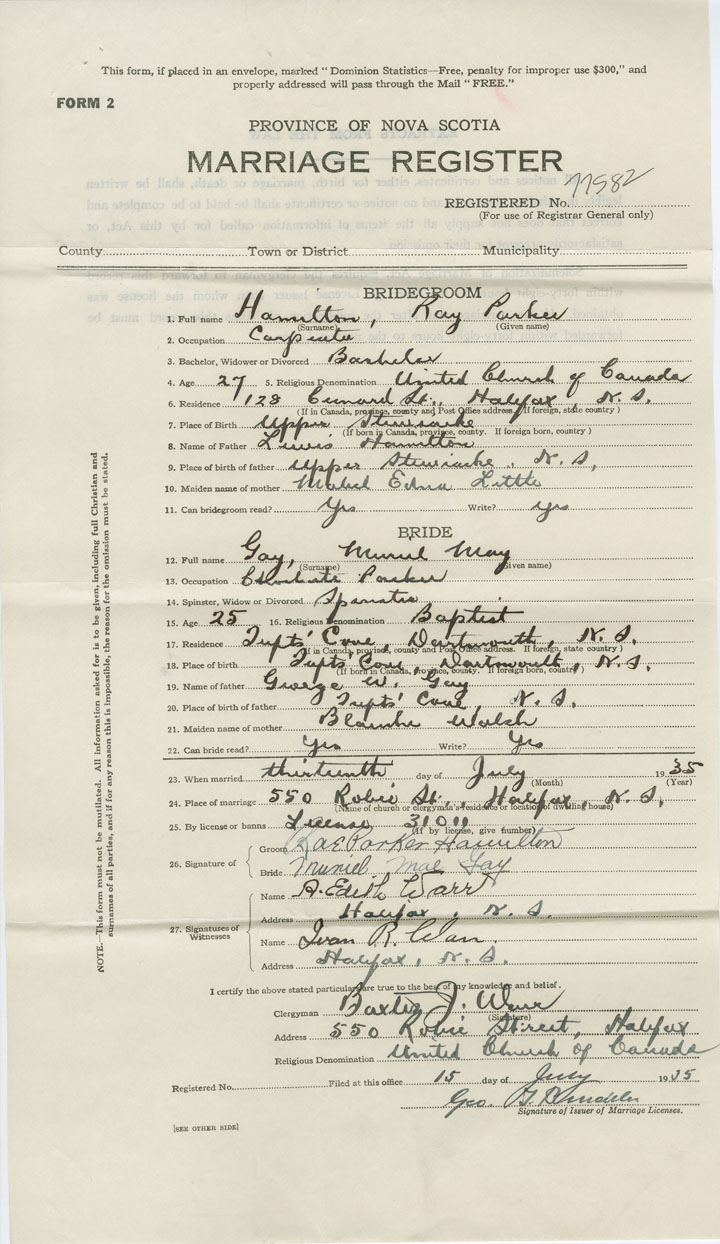 This form, if placed in an envelope, marked "Dominion Statistics—Free, penalty for improper use $300," and
properly addressed will pass through the Mail "FREE."
FORM 2
PROVINCE OF NOVA SCOTIA
MARRIAGE REGISTER
REGISTERED No. 77582
(For use of Registrar General only)
County Town or District Municipality
BRIDEGROOM
1. Full name Hamilton, Ray Parker
(Surname) (Given name)
2. Occupation Carpenter
3. Bachelor, Widower or Divorced Bachelor
4. Age 27 5. Religious Denomination United Church of Canada
6. Residence 128 Cunard St., Halifax, N. S.
(If in Canada, province, county and Post Office address. If foreign, state country)
7. Place of Birth Upper Stewiacke
(If born in Canada, province, county. If foreign born, country)
8. Name of Father Lewis Hamilton
9. Place of birth of father Upper Stewiacke, N. S,
10. Maiden name of mother Mabel Edna Little
11. Can bridegroom read? Yes Write? yes
BRIDE
12. Full name Gay, Muriel May
(Surname) (Given name)
13. Occupation Chocolate Packer
14. Spinster, Widow or Divorced Spinster
15. Age 25 16. Religious Denomination Baptist
17. Residence Tufts' Cove, Dartmouth, N. S.
(If in Canada, province, county and Post Office address. If foreign, state country)
18. Place of birth Tufts' Cove, Dartmouth, N. S.
(If born in Canada, province, county. If foreign born, country)
19. Name of father George W. Gay
20. Place of birth of father Tufts' Cove, N. S.
21. Maiden name of mother Blanche Walsh
22. Can bride read? Yes Write? Yes
23. When married thirteenth day of July 1935
(Month) (Year)
24. Place of marriage 550 Robie St., Halifax, N. S,
(Name of church or clergyman's residence or location of dwelling house)
25. By license or banns License 31011
(If by license, give number)
26. Signature of Groom Rae Parker Hamilton
Bride Muriel Mae Gay
27. Signatures of Witnesses
Name A. Edith Warr
Address Halifax, N. S.
Name Ivan R. Warr
Address Halifax, N. S.
I certify the above stated particulars are true to the best of my knowledge and belief.
Clergyman Baxter J. Warr
(Signature)
Address 550 Robie Street, Halifax
Religious Denomination United Church of Canada
Registered No. Filed at this office 15 day of July 1935
Geo. G.
Signature of Issuer of Marriage Licenses.
[SEE OTHER SIDE]
NOTE.—This form must not be mutilated. All information asked for is to be given, including full Christian and
surnames of all parties, and if for any reason this is impossible, the reason for the omission must be stated.